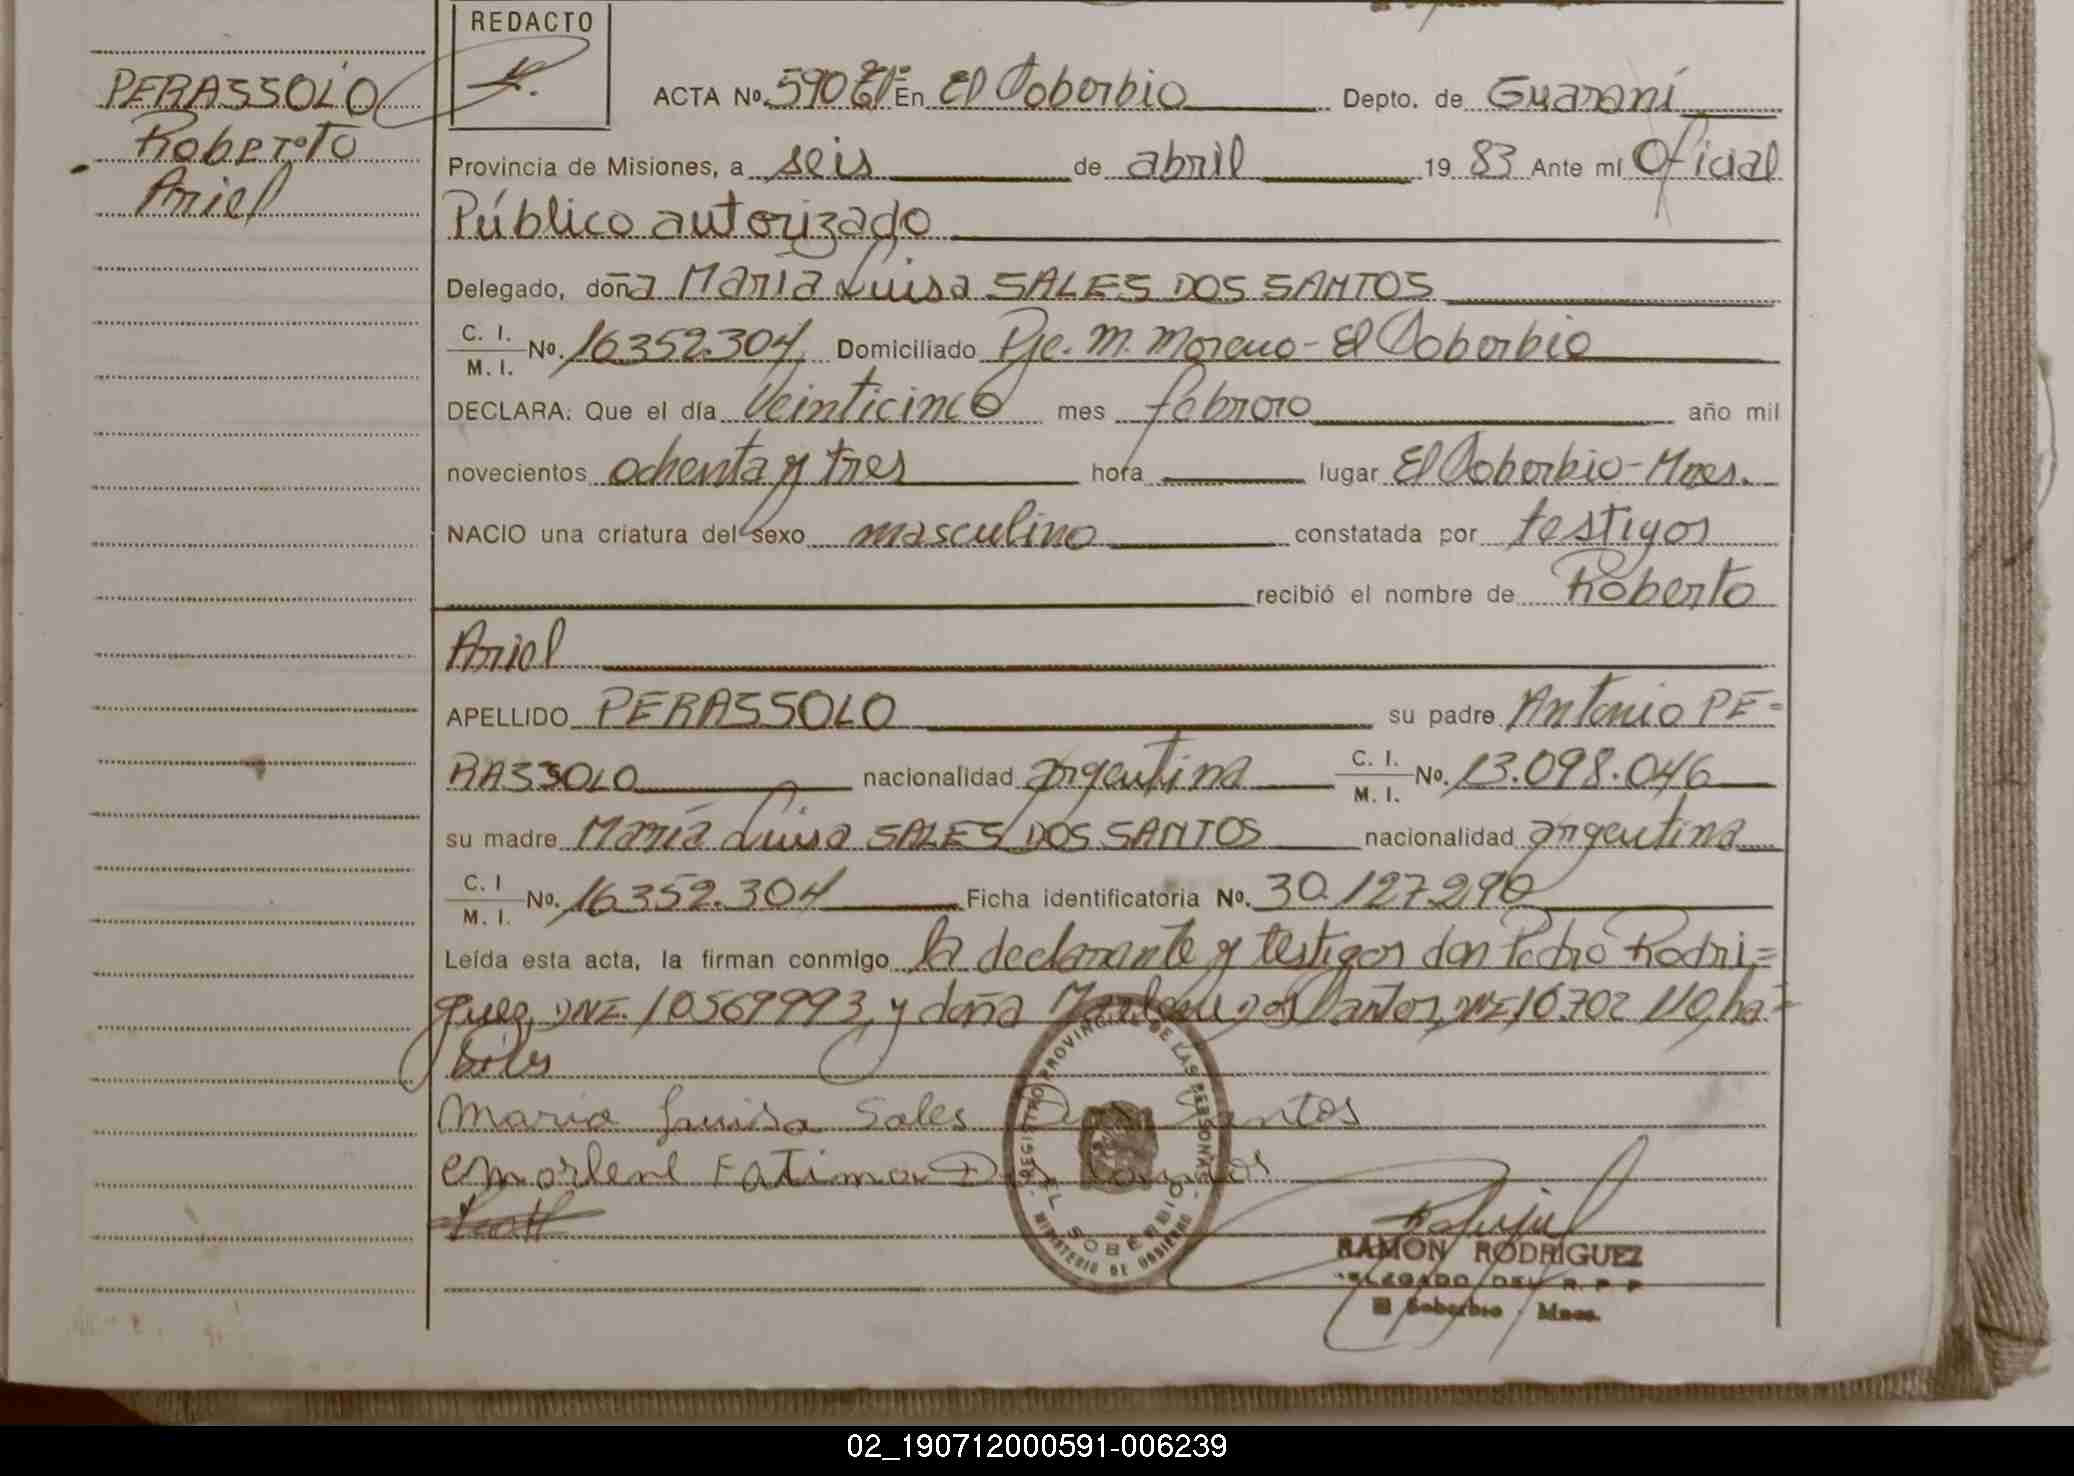 REDACTO
PERASSOLO
Roberto
Ariel
ACTA No. 590 En El Soberbio Depto. de Guaraní
Provincia de Misiones, a seis de abril 19 83 Ante mí Oficial
Público autorizado
Delegado, doña María Luisa SALES DOS SANTOS
C. I.
M. I. No. 16352.304 Domiciliado Pje. M. Moreno - El Soberbio
DECLARA: Que el día veinticinco mes febrero año mil
novecientos ochenta y tres hora lugar El Soberbio - Mnes.
NACIO una criatura del sexo masculino constatada por testigos
recibió el nombre de Roberto
Ariel
APELLIDO PERASSOLO su padre Antonio PE=
RASSOLO nacionalidad argentina C. I. M. I. No. 13.098.046
su madre María Luisa SALES DOS SANTOS nacionalidad argentina
C. I
M. I. No. 16352.304 Ficha identificatoria No. 30.127.290
Leída esta acta, la firman conmigo la declarante y testigos don Pedro Rodri=
guez, DNI. 10569993, y doña Marlene dos Santos, DNI 16.702 110, ha=
biles
Maria Luisa Sales Dos Santos
Marlene Fatima Dos Santos
REGISTRO PROVINCIAL DE LAS PERSONAS
EL SOBERBIO
MINISTERIO DE GOBIERNO
RAMON RODRIGUEZ
DELEGADO DEL R. P. P
El Soberbio - Mnes.
02_190712000591-006239